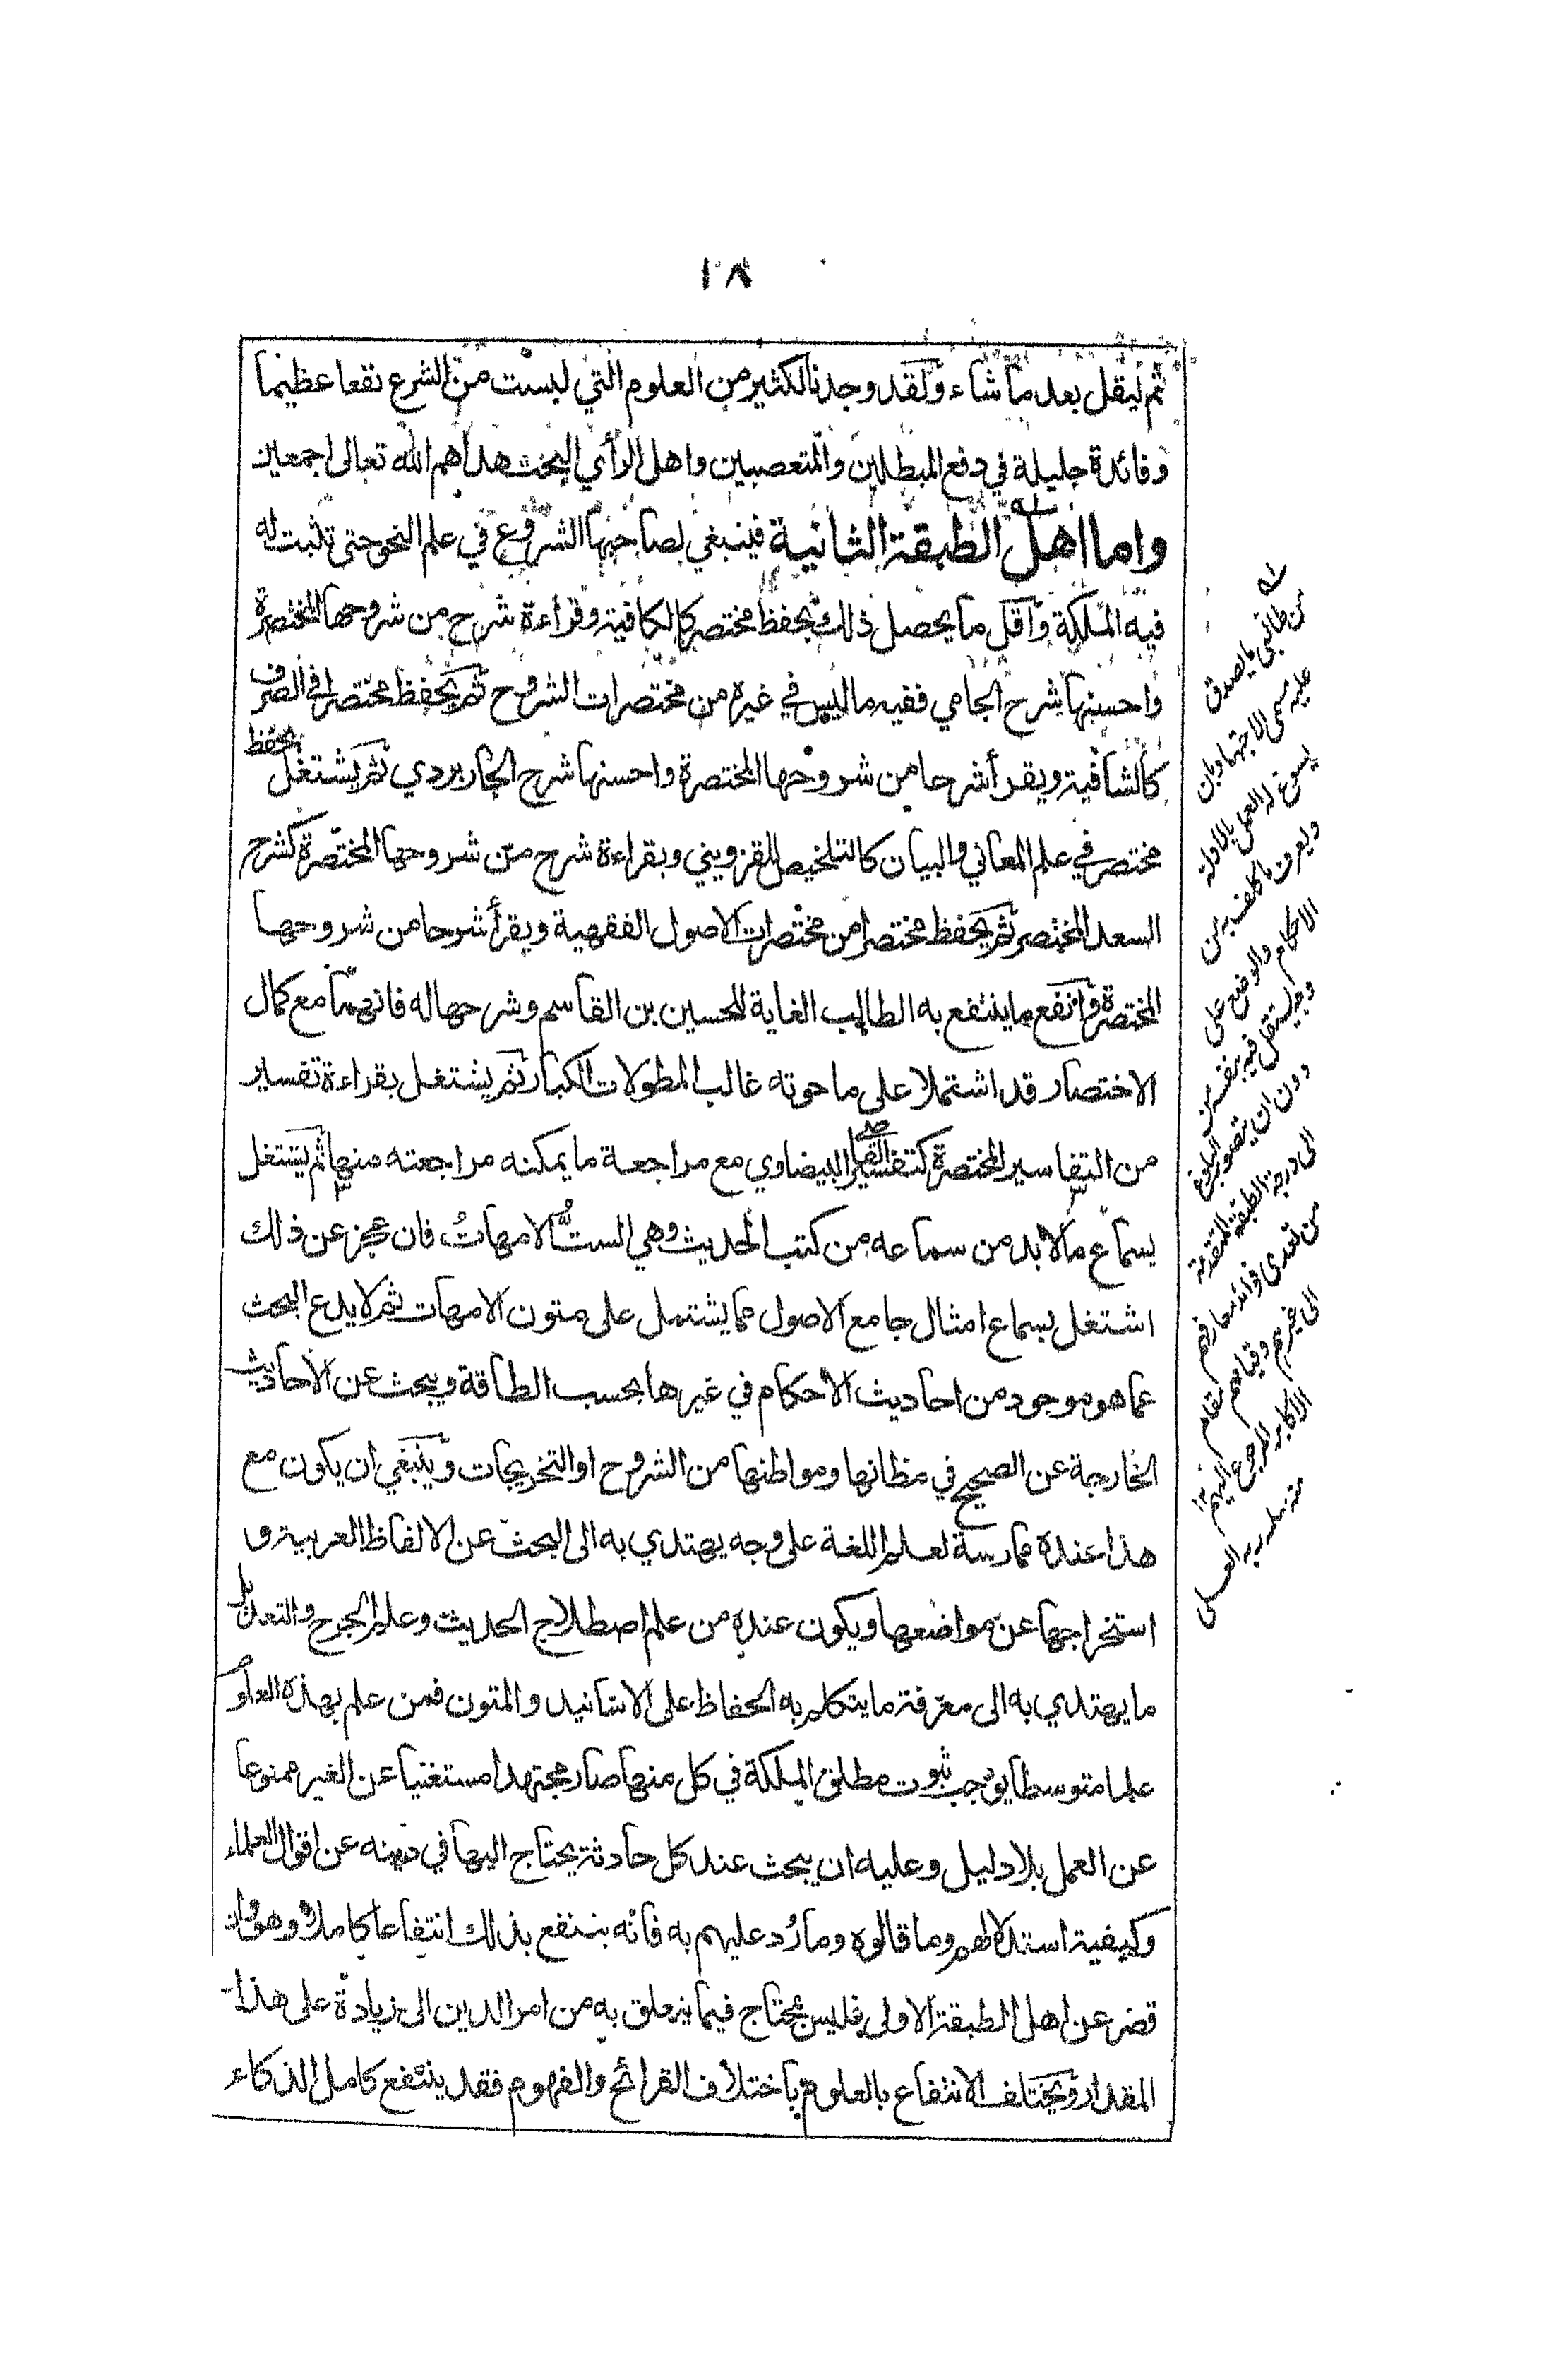 ١٠٨
ثم ليقل بعد ما شاء ولقد وجدنا لكثير من العلوم التي ليست من الشرع نفعا عظيما
وفائدة جليلة في دفع المبطلين والمتعصبين واهل الرأي البحت هداهم الله تعالى اجمعين
واما اهل الطبقة الثانية فينبغي لصاحبها الشروع في علم النحو حتى تثبت له
فيه الملكة واقل ما يحصل ذلك بحفظ مختصر كالكافية وقراءة شرح من شروحها المختصرة
واحسنها شرح الجامي ففيه ما ليس في غيره من مختصرات الشروح ثم يحفظ مختصرا في الصرف
كالشافية ويقرأ شرحا من شروحها المختصرة واحسنها شرح الجاربردي ثم يشتغل بحفظ
مختصر في علم المعاني والبيان كالتلخيص للقزويني وبقراءة شرح من شروحها المختصرة كشرح
السعد المختصر ثم يحفظ مختصرا من مختصرات الاصول الفقهية ويقرأ شرحا من شروحها
المختصرة وانفع ما ينتفع به الطالب الغاية للحسين بن القاسم وشرحها له فانهما مع كمال
الاختصار قد اشتملا على ما حوته غالب المطولات الكبار ثم يشتغل بقراءة تفسير
من التفاسير المختصرة كتفسير القاضي البيضاوي مع مراجعة ما يمكنه مراجعته منها ثم يشتغل
بسماع ما لا بد من سماعه من كتب الحديث وهي الست الامهات فان عجز عن ذلك
اشتغل بسماع امثال جامع الاصول مما يشتمل على متون الامهات ثم لا يدع البحث
عما هو موجود من احاديث الاحكام في غيرها بحسب الطاقة ويبحث عن الاحاديث
الخارجة عن الصحيح في مظانها ومواطنها من الشروح او التخريجات وينبغي ان يكون مع
هذا عنده ممارسة لعلم اللغة على وجه يهتدي به الى البحث عن الالفاظ العربية و
استخراجها عن مواضعها ويكون عنده من علم اصطلاح الحديث وعلم الجرح والتعديل
ما يهتدي به الى معرفة ما يتكلم به الحفاظ على الاسانيد والمتون فمن علم بهذه العلوم
علما متوسطا يوجب ثبوت مطلق الملكة في كل منها صار مجتهدا مستغنيا عن الغير ممنوعا
عن العمل بلا دليل وعليه ان يبحث عند كل حادثة يحتاج اليها في دينه عن اقوال العلماء
وكيفية استدلالهم وما قالوه وما رُد عليهم به فانه ينتفع بذلك انتفاعا كاملا وهو وان
قصر عن اهل الطبقة الاولى فليس بمحتاج فيما يتعلق به من امر الدين الى زيادة على هذا
المقدار ويختلف الانتفاع بالعلوم باختلاف القرائح والفهوم فقد ينتفع كامل الذكاء
يصدق
عليه مسمى الاجتهاد وان
يسوغ له العمل بالادلة
ويعرف ما كلف به من
الاحكام والوضع على
وجه يستقل فيه بنفسه من
دون ان يتصور البلوغ
الى درجة الطبقة المتقدمة
من تعدى فوائد معارفهم
الى غيرهم وقيامهم مقام
الاكابر المرجوع اليهم ١٢